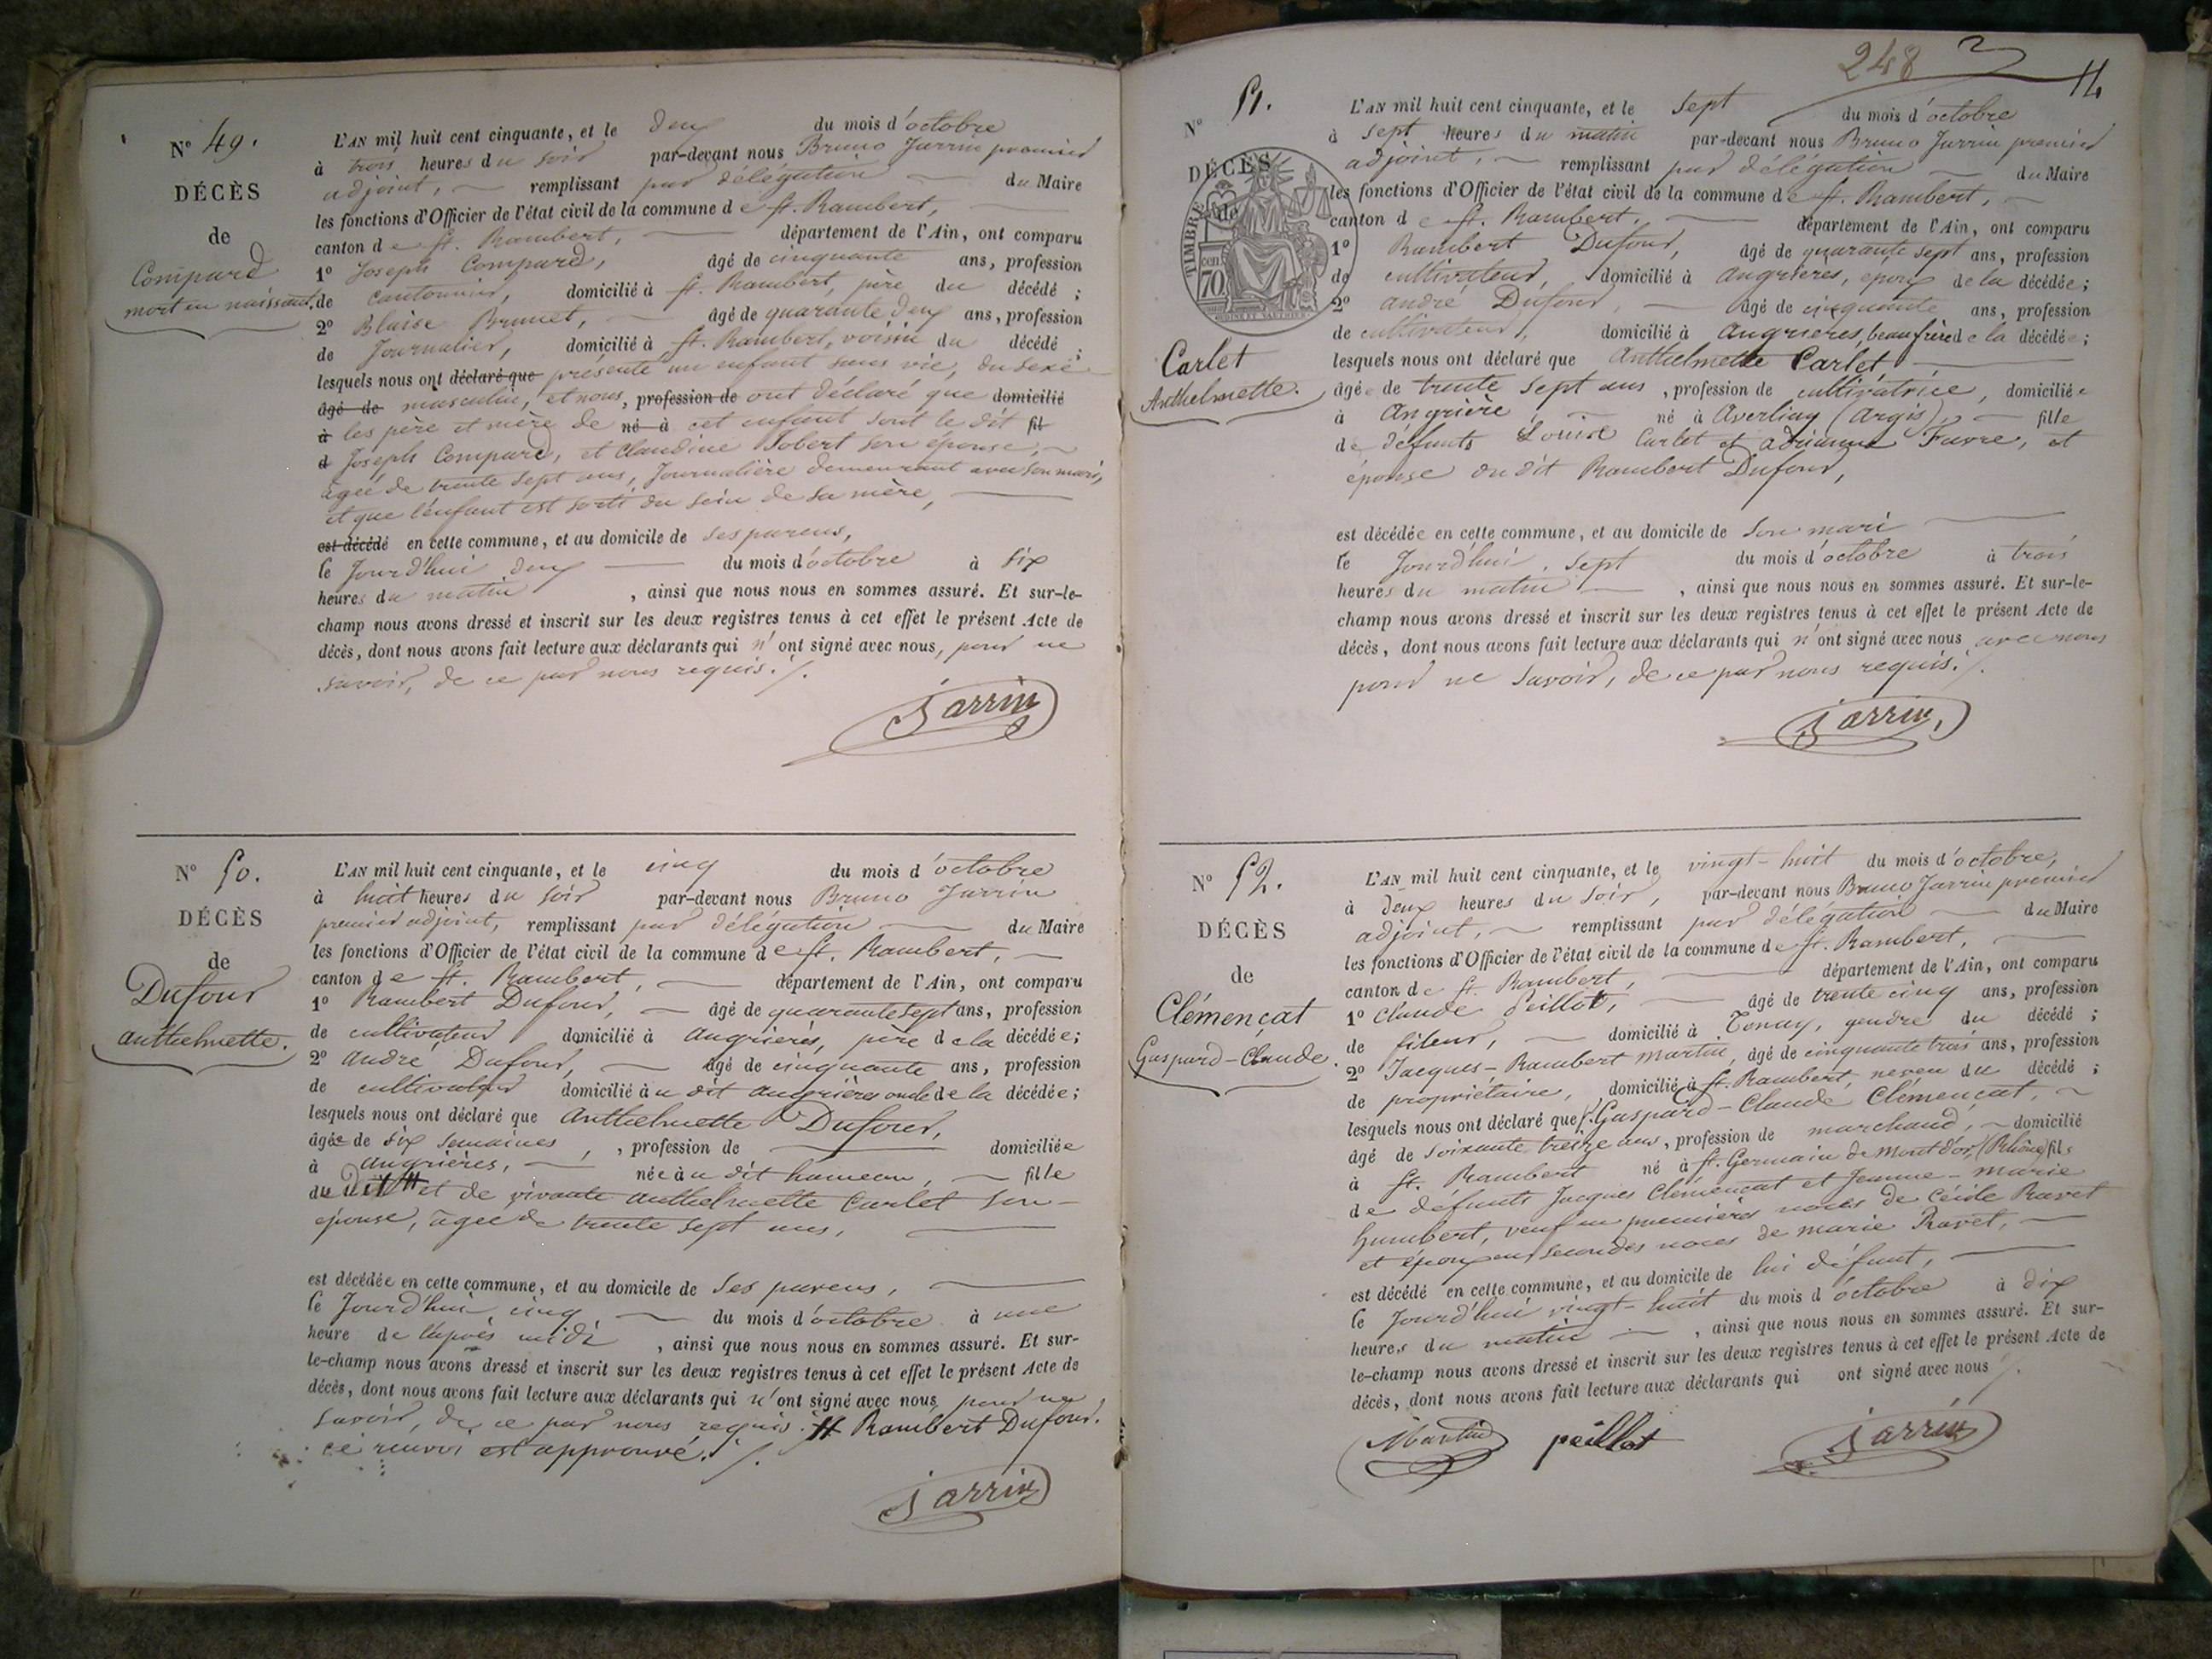 N° 49.
DÉCÈS
de
Compard
mort en naissant,
L'AN mil huit cent cinquante, et le deux du mois d'octobre
à trois heures du soir par-devant nous Bruno Jarrin premier
adjoint, remplissant par délégation du Maire
les fonctions d'Officier de l'état civil de la commune de St. Rambert,
canton de St. Rambert, département de l'Ain, ont comparu
1° Joseph Compard, âgé de cinquante ans, profession
de cantonnier, domicilié à St. Rambert, père du décédé ;
2° Blaise Brunet, âgé de quarante deux ans, profession
de Journalier, domicilié à St. Rambert, voisin du décédé ;
lesquels nous ont déclaré que présenté un enfant sans vie, du sexe
âgé de masculin, et nous, profession de ont déclaré que domicilié
à les père et mère de né à cet enfant sont le dit fil
d Joseph Compard, et Claudine Jobert son épouse,
agée de trente sept ans, Journalière demeurant avec son mari,
et que l'enfant est sorti du sein de sa mère,
est décédé en cette commune, et au domicile de ses parens,
le Jourd'hui deux du mois d'octobre à six
heures du matin, ainsi que nous nous en sommes assuré. Et sur-le-
champ nous avons dressé et inscrit sur les deux registres tenus à cet effet le présent Acte de
décès, dont nous avons fait lecture aux déclarants qui n'ont signé avec nous, pour ne
savoir, de ce par nous requis ./.
Jarrin
N° 50.
DÉCÈS
de
Dufour
anthelmette.
L'AN mil huit cent cinquante, et le cinq du mois d'octobre
à huit heures du soir par-devant nous Bruno Jarrin
premier adjoint, remplissant par délégation du Maire
les fonctions d'Officier de l'état civil de la commune de St. Rambert,
canton de St. Rambert, département de l'Ain, ont comparu
1° Rambert Dufour, âgé de quarante sept ans, profession
de cultivateur domicilié à angrières, père de la décédée;
2° andré Dufour, âgé de cinquante ans, profession
de cultivateur domicilié au dit angrières oncle de la décédée;
lesquels nous ont déclaré que anthelmette Dufour,
âgée de six semaines, , profession de domiciliée
à angrières, née au dit hameau, fille
du dit # et de vivante anthelmette Carlet son
épouse, agée de trente sept ans,
est décédée en cette commune, et au domicile de ses parens,
le Jourd'hui cinq du mois d'octobre à une
heure de l'après midi, ainsi que nous nous en sommes assuré. Et sur-
le-champ nous avons dressé et inscrit sur les deux registres tenus à cet effet le présent Acte de
décès, dont nous avons fait lecture aux déclarants qui n'ont signé avec nous, pour ne
savoir, de ce par nous requis. # Rambert Dufour.
ce renvoi est approuvé ./.
Jarrin
248
N° 51.
DÉCÈS
de
TIMBRE
70 cen
Carlet
Anthelmette.
L'AN mil huit cent cinquante, et le sept du mois d'octobre
à sept heures du matin par-devant nous Bruno Jarrin premier
adjoint, remplissant par délégation du Maire
les fonctions d'Officier de l'état civil de la commune de St. Rambert,
canton de St. Rambert, département de l'Ain, ont comparu
1° Rambert Dufour, âgé de quarante sept ans, profession
de cultivateur, domicilié à angrieres, epoux de la décédée;
2° andré Dufour, âgé de cinquante ans, profession
de cultivateur, domicilié à angrieres, beau frère de la décédée;
lesquels nous ont déclaré que anthelmette Carlet,
âgée de trente sept ans, profession de cultivatrice, domiciliée
à Angrière né à Averliay (Argis), fille
de défunts Louis Carlet et adrianne Favre, et
épouse du dit Rambert Dufour,
est décédée en cette commune, et au domicile de son mari
le Jourd'hui, sept du mois d'octobre à trois
heures du matin, ainsi que nous nous en sommes assuré. Et sur-le-
champ nous avons dressé et inscrit sur les deux registres tenus à cet effet le présent Acte de
décès, dont nous avons fait lecture aux déclarants qui n'ont signé avec nous avec nous
pour ne savoir, de ce par nous requis ./.
Jarrin,
N° 52.
DÉCÈS
de
Clémençat
Gaspard-Claude.
L'AN mil huit cent cinquante, et le vingt-huit du mois d'octobre,
à deux heures du soir, par-devant nous Bruno Jarrin premier
adjoint, remplissant par délégation du Maire
les fonctions d'Officier de l'état civil de la commune de St. Rambert,
canton de St. Rambert, département de l'Ain, ont comparu
1° Claude Peillot, âgé de trente cinq ans, profession
de fileur, domicilié à Tenay, gendre du décédé ;
2° Jacques-Rambert Martin, âgé de cinquante trois ans, profession
de propriétaire, domicilié à St. Rambert, neveu du décédé ;
lesquels nous ont déclaré que Gaspard-Claude Clémençat,
âgé de soixante treize ans, profession de marchand, domicilié
à St. Rambert né à St. Germain du Mont d'or, (Rhône) fils
de défunts Jacques Clémençat et Jeanne-Marie
humbert, veuf en premières noces de Cécile Ravet
et époux en secondes noces de marie Ravet,
est décédé en cette commune, et au domicile de lui défunt,
le Jourd'hui vingt-huit du mois d'octobre à dix
heures du matin, ainsi que nous nous en sommes assuré. Et sur-
le-champ nous avons dressé et inscrit sur les deux registres tenus à cet effet le présent Acte de
décès, dont nous avons fait lecture aux déclarants qui ont signé avec nous ./.
Martin peillot Jarrin